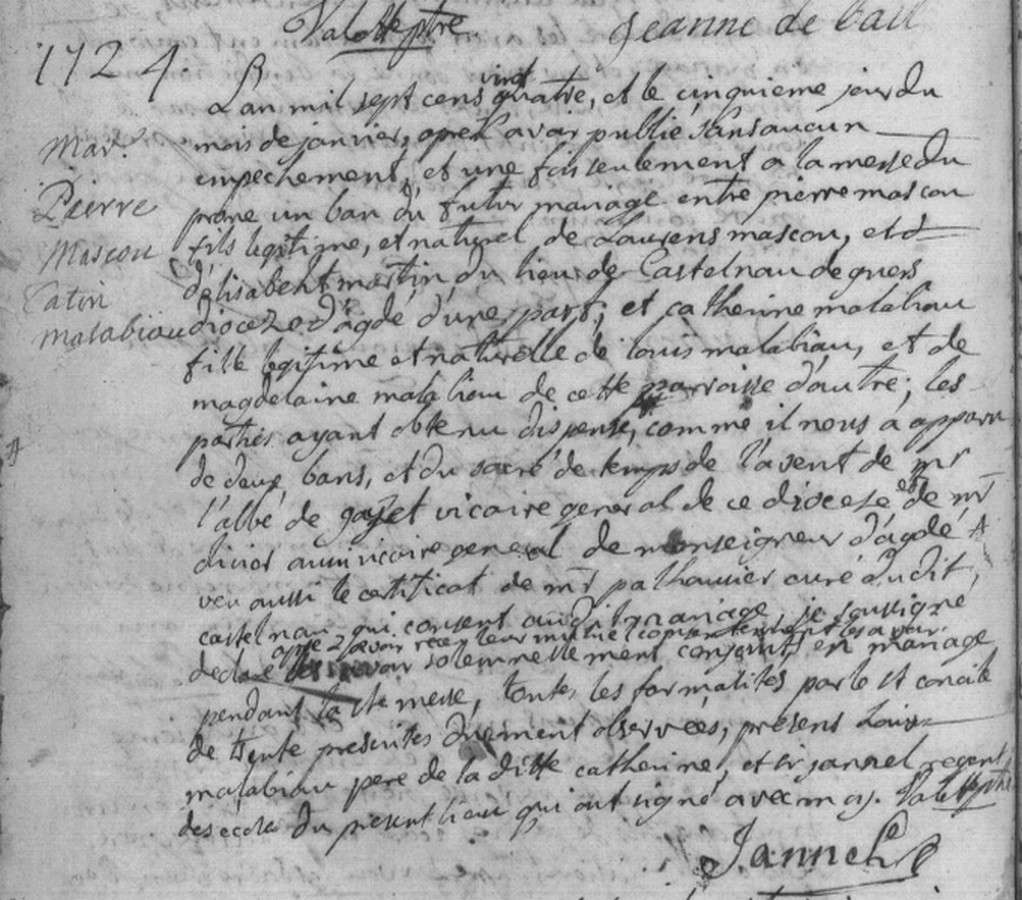 Valette ptre Jeanne de bail
1724
Mar.
Pierre
Mascou
Catin
malabiau
L'an mil sept cens vint quatre, et le cinquieme jour du
mois de janvier, apres avoir publié sans aucun
empechement, et une fois seulement a la messe du
prone un ban du futur mariage entre pierre mascou
fils legitime, et naturel de Laurens mascou, et d
d'élisabent martin du lieu de Castelnau de guers
dioceze d'agde d'une part; et catherine malabiau
fille legitime et naturelle de louis malabiau, et de
magdelaine malabiau de cette parroisse d'autre; les
parties ayant obtenu dispense, comme il nous a apparu
de deux bans, et du sacré de temps de l'avent de mr
l'abbé de gayet vicaire general de ce diocese et de mr
aussi vicaire general de monseigneur d'agde
veu aussi le certificat de mr palhausier curé dudit
castelnau qui consent audit mariage, je soussigné
apres avoir receu leur mutuel consentement les avoir
declare solemnellement conjoints en mariage
pendant la ste messe, toutes les formalites par le st concile
de trente prescrites duement observées, presens Louis
malabiau pere de la ditte catherine, et sr jannel regent
des ecoles du present lieu qui ont signé avec moy. Valette ptre
Jannel